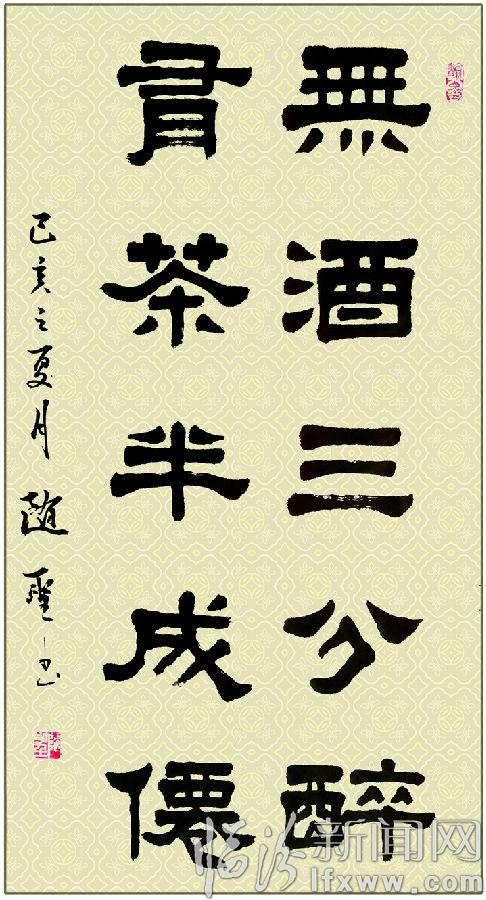 無酒三分醉
有茶半成僊
己亥之夏月 趙 书
临汾新闻网
lfxww.com